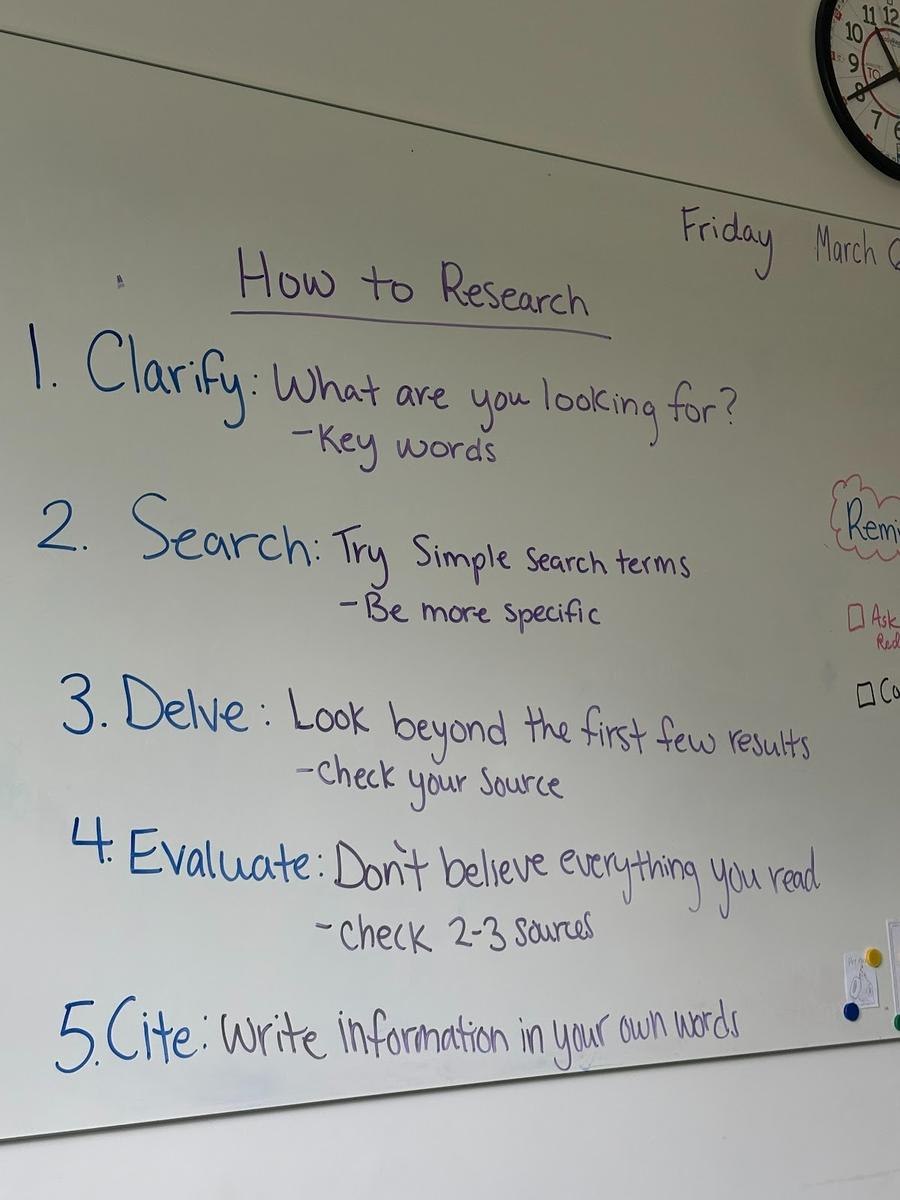 11 12
10
9
8
7
6
TO
Friday March
How to Research
1. Clarify: What are you looking for?
-Key words
2. Search: Try Simple Search terms
-Be more specific
3. Delve: Look beyond the first few results
-check your source
4. Evaluate: Don't believe everything you read
-check 2-3 sources
5. Cite: Write information in your own words
Remi
Ask
Red
Co